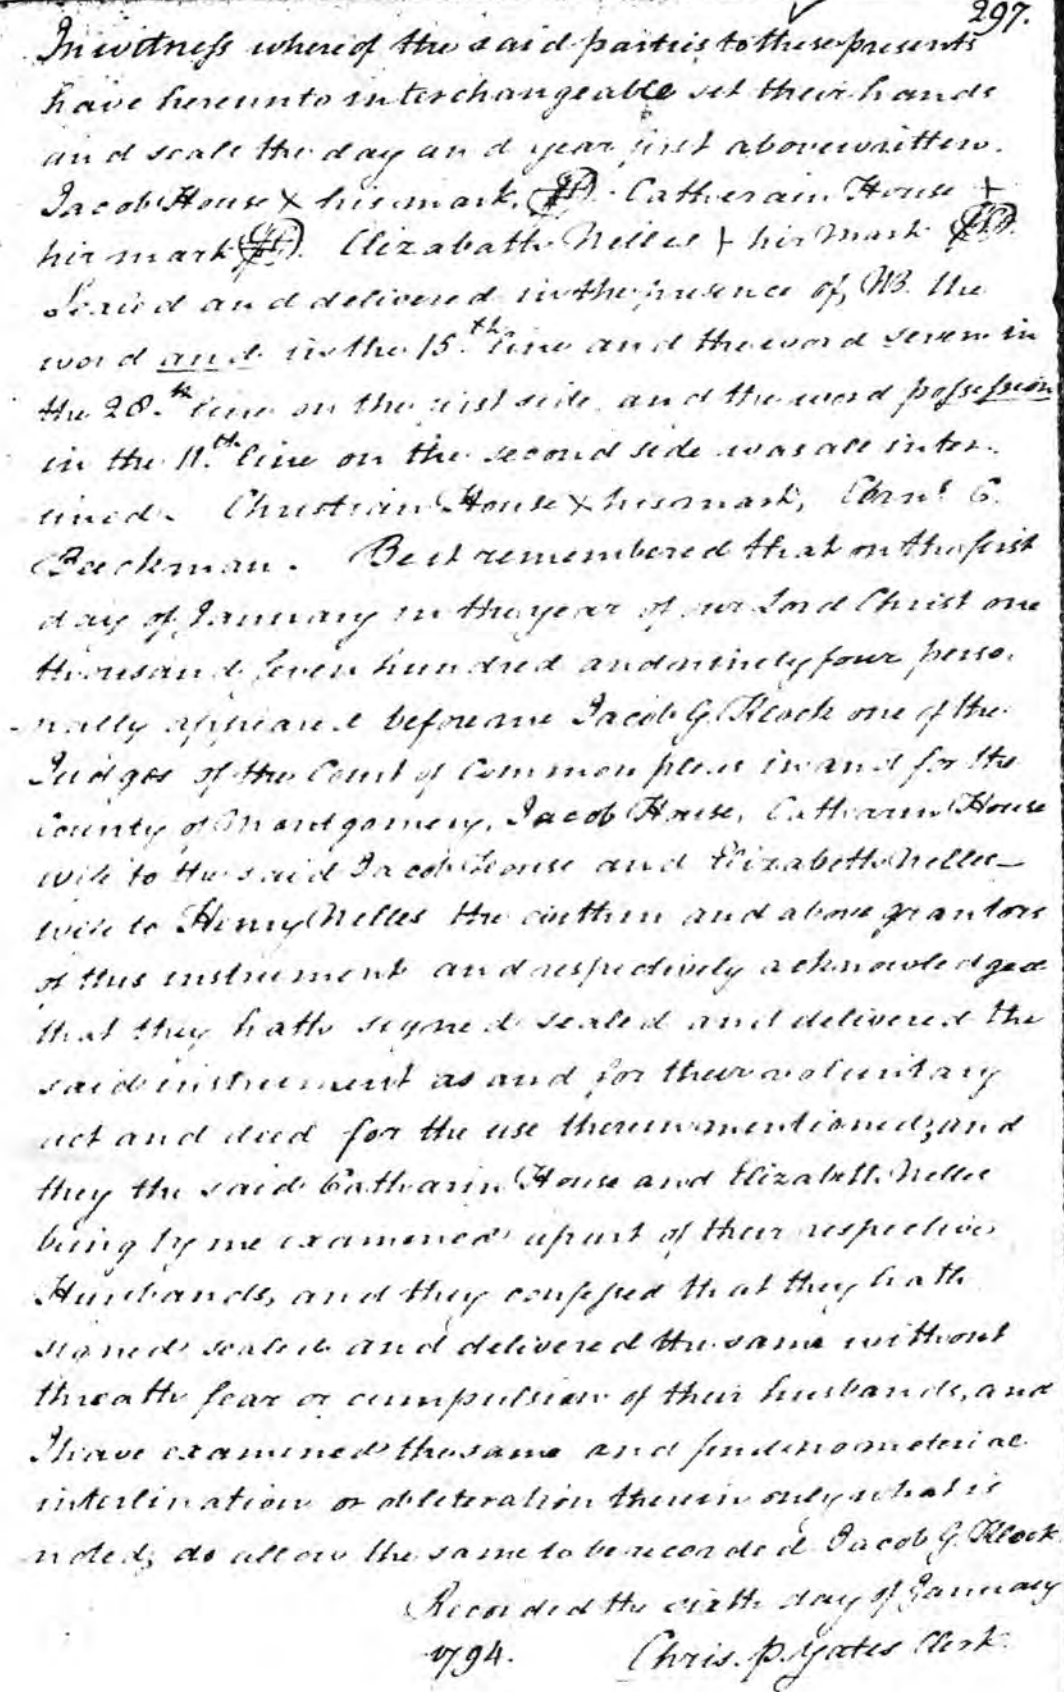 297.
In witness whereof the said parties to these presents
have hereunto interchangeable set their hands
and seals the day and year first above written.
Jacob House X his mark, (LS). Catherain House +
hir mark (LS). Elizabath Nelles + hir Mark (LS).
Sealed and delivered in the presence of, NB. the
word and in the 15.th line and the word seven in
the 28.th line on the first side, and the word possession
in the 11.th line on the second side was all inter-
lined. Christian House X his mark, Corns. C.
Beeckman. Be it remembered that on the first
day of January in the year of our Lord Christ one
thousand seven hundred and ninety four perso-
-nally appeared before me Jacob G. Klock one of the
Judges of the Court of Common pleas in and for the
County of Montgomery, Jacob House, Catharin House
wife to the said Jacob House and Elizabeth Nelles
wife to Henry Nelles the within and above grantors
of this instrument and respectively acknowledged
that they hath signed sealed and delivered the
said instrument as and for their voluntary
act and deed for the use therein mentioned; and
they the said Catharin House and Elizabeth Nelles
being by me examined apart of their respective
Husbands, and they confessed that they hath
signed sealed and delivered the same without
threath fear or compulsion of their husbands, and
I have examined the same and find no material
interlination or obliteration therein only what is
noted; do allow the same to be recorded Jacob G. Klock
Recorded the sixth day of January
1794. Chris. P. Yates Clerk.